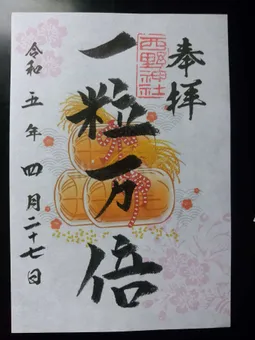 奉拝
西野神社
一粒万倍
令和五年四月二十七日